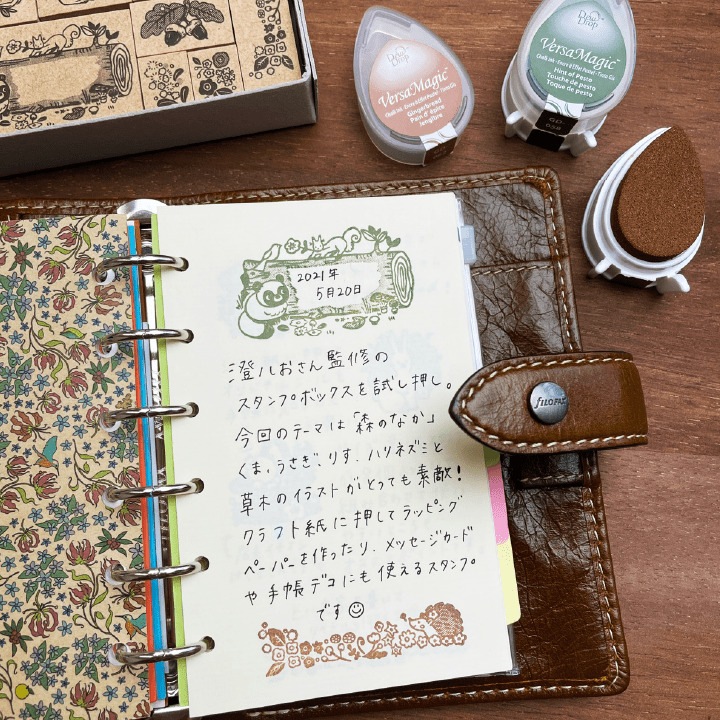 Dew Drop
VersaMagic™
Chalk Ink · Encre à Effet Pastel · Tinta Gis
Gingerbread
Pain d'épice
Jengibre
Dew Drop
VersaMagic™
Chalk Ink · Encre à Effet Pastel · Tinta Gis
Hint of Pesto
Touche de pesto
Toque de pesto
GD-
058
2021年
5月20日
澄ノおさん監修の
スタンプボックスを試し押し。
今回のテーマは「森のなか」
くま、うさぎ、りす、ハリネズミと
草木のイラストがとっても素敵!
クラフト紙に押してラッピング
ペーパーを作ったり、メッセージカード
や手帳デコにも使えるスタンプ
です☺
filofax